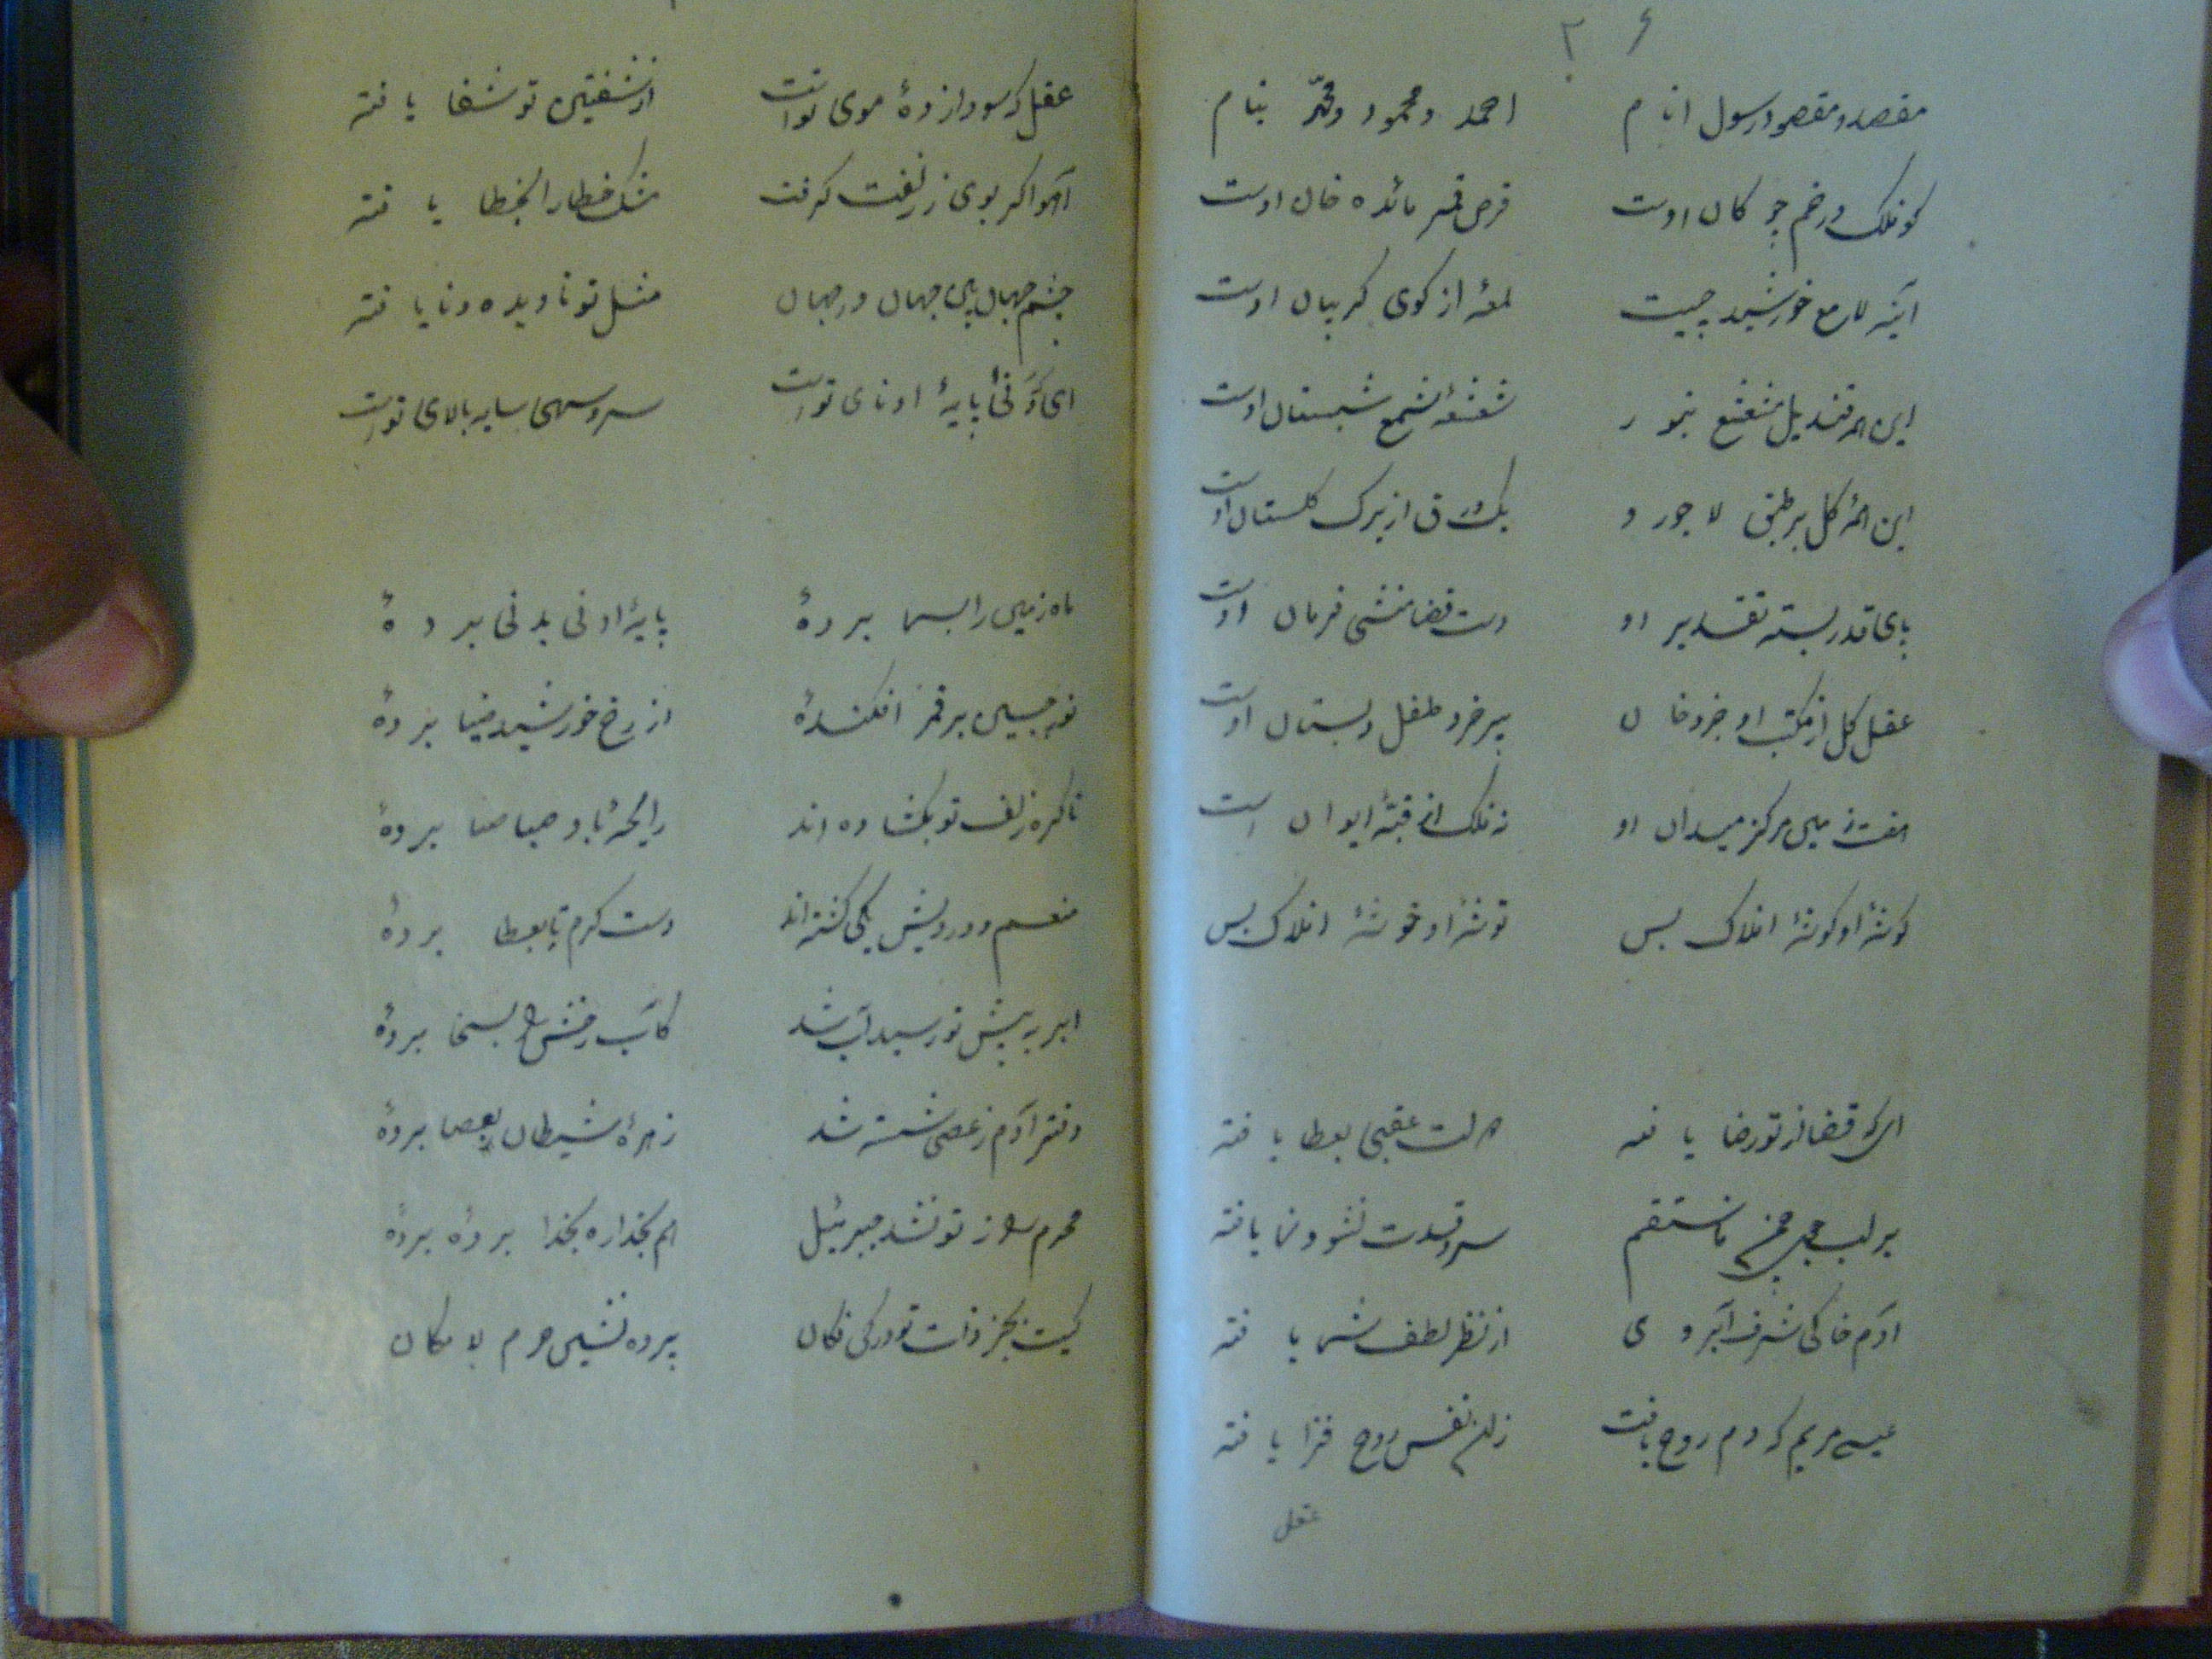 ۲۶
مقصد و مقصود رسول انام احمد و محمود و محمد بنام
کو فلک در خم چوکان اوست قرص قمر مائده خان اوست
آینه لامع خورشید چیست لمعهٔ از کوی کریبان اوست
این همه قندیل مشعشع بنور شعشعهٔ شمع شبستان اوست
این همه کل بر طبق لاجورد یک ورق از برک کلستان اوست
پای قدر بسته تقدیر او دست قضا منشی فرمان اوست
عقل کل از مکتب او جزو خوان پیر خرد طفل دبستان اوست
هفت زمین مرکز میدان او نه فلک از قبهٔ ایوان است
کوشهٔ او کوشهٔ افلاک بس توشهٔ او خوشهٔ افلاک بس
ای که قضا از تو رضا یافته دولت عقبی بعطا یافته
بر لب جوی فاستقم سرو قدت نشو و نما یافته
آدم خاکی شرف آبروی از نظر لطف شما یافته
عیسی مریم که دم روح یافت زان نفس روح فزا یافته
عقل
عقل که سودازدهٔ موی توست از شفتین تو شفا یافته
آهو اکر بوی ز زلفت کرفت مشک خطا را بخطا یافته
چشم جهان بین جهان در جهان مثل تو نادیده و نایافته
ای که دنی پایهٔ ادنای توست سرو سهی سایه بالای توست
ماه زمین را بسما بردهٔ پایهٔ ادنی بدنی بردهٔ
نور جبین بر قمر افکندهٔ از رخ خورشید ضیا بردهٔ
تا کره زلف تو بکشاده اند رایحهٔ باد صبا بردهٔ
منعم و درویش یکی کشته اند دست کرم تا بعطا بردهٔ
ابر به پیش تو رسید آب شد کاب رخش را بسخا بردهٔ
دفتر آدم ز عصی شسته شد زهرهٔ شیطان بعصا بردهٔ
محرم راز تو نشد جبرئیل هم بخدا ره بخدا بردهٔ بردهٔ
کیست بجز ذات تو در کن فکان پرده نشین حرم لامکان